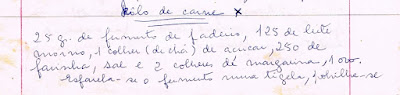 Bôlo de carne x
25 g. de fermento de padeiro, 125 de leite
morno, 1 colher (de chá) de açucar, 250 de
farinha, sal e 2 colheres de margarina, 1 ovo.
Esfarela-se o fermento numa tigela, polvilha-se